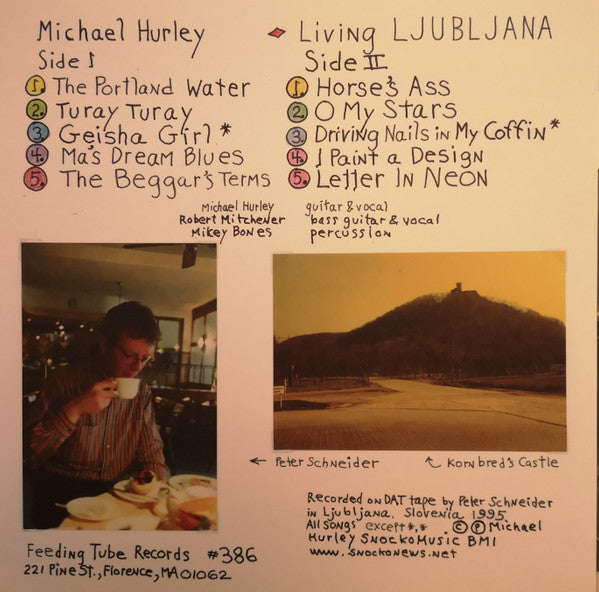 Michael Hurley
Side 1
1. The Portland Water
2. Turay Turay
3. Geisha Girl*
4. Ma's Dream Blues
5. The Beggar's Terms
Living LJUBLJANA
Side II
1. Horse's Ass
2. O My Stars
3. Driving Nails in My Coffin*
4. I Paint a Design
5. Letter In Neon
Michael Hurley guitar & vocal
Robert Mitchener bass guitar & vocal
Mikey Bones percussion
← Peter Schneider
Kornbred's Castle
Recorded on DAT tape by Peter Schneider
in Ljubljana, Slovenia 1995
All songs except *,* © ℗ Michael
Hurley SnockoMusic BMI
www.snockonews.net
Feeding Tube Records #386
221 Pine St., Florence, MA 01062